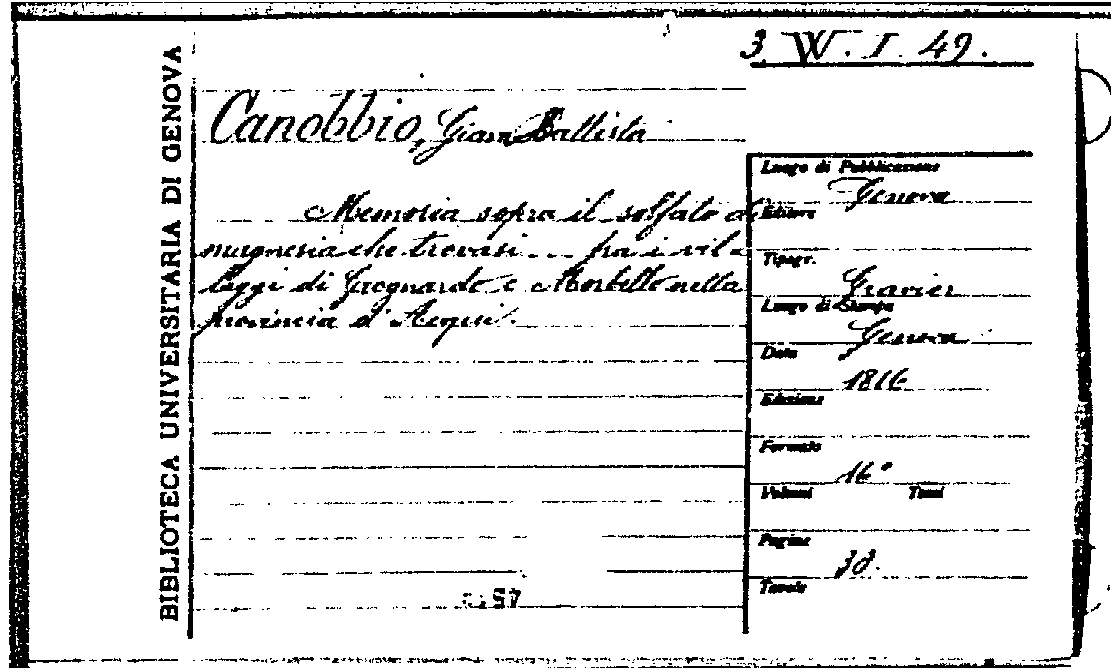 3. W. I. 49.
BIBLIOTECA UNIVERSITARIA DI GENOVA
Canobbio, Giam Battista
Memoria sopra il solfato di
magnesia che trovasi ... fra i vil-
laggi di Grognardo e Morbello nella
provincia d'Acqui.
Luogo di Pubblicazione
Genova
Editore
Tipogr.
Gravier
Luogo di Stampa
Genova
Data
1816
Edizione
Formato
16°
Volumi Tomi
Pagine
Tavole